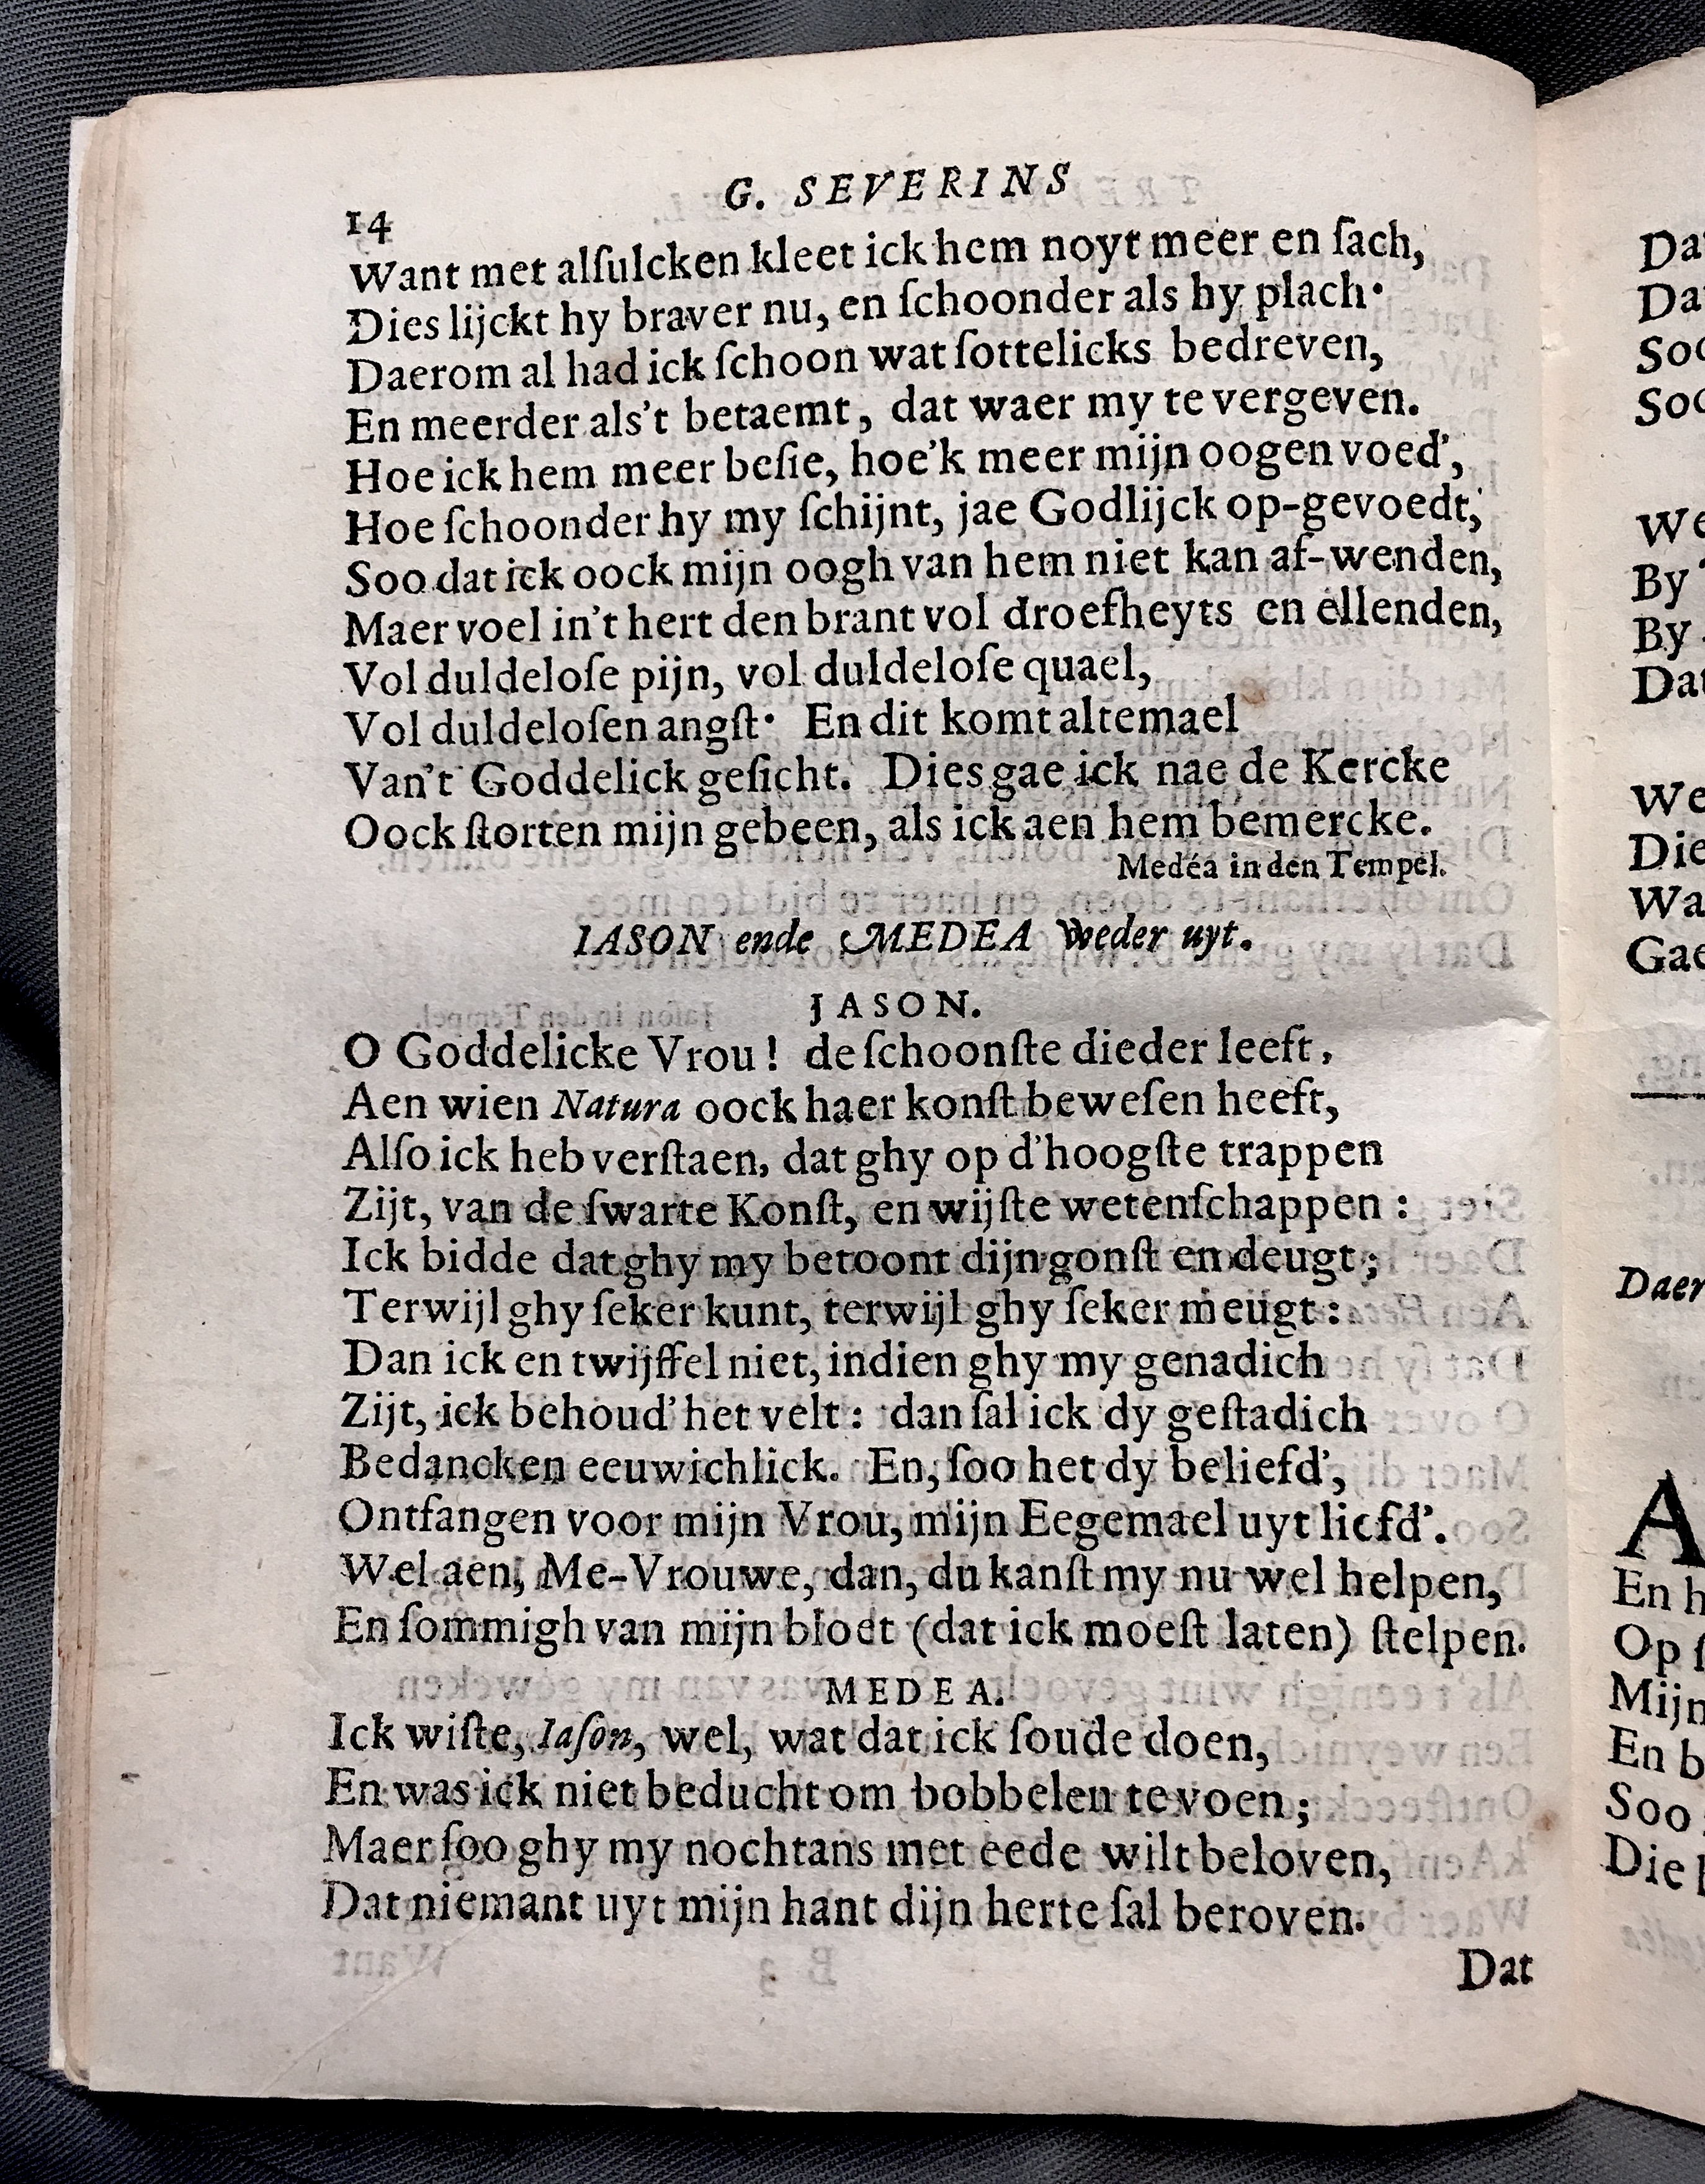 G. SEVERINS
14
Want met alſulcken kleet ick hem noyt meer en ſach,
Dies lijckt hy braver nu, en ſchoonder als hy plach.
Daerom al had ick ſchoon wat ſottelicks bedreven,
En meerder als't betaemt, dat waer my te vergeven.
Hoe ick hem meer beſie, hoe'k meer mijn oogen voed',
Hoe ſchoonder hy my ſchijnt, jae Godlijck op-gevoedt,
Soo dat ick oock mijn oogh van hem niet kan af-wenden,
Maer voel in't hert den brant vol droefheyts en ellenden,
Vol duldeloſe pijn, vol duldeloſe quael,
Vol duldeloſen angſt. En dit komt altemael
Van't Goddelick geſicht. Dies gae ick nae de Kercke
Oock ſtorten mijn gebeen, als ick aen hem bemercke.
Medéa in den Tempel.
IASON ende MEDEA Weder uyt.
JASON.
O Goddelicke Vrou! de ſchoonſte die der leeft,
Aen wien Natura oock haer konſt beweſen heeft,
Alſo ick heb verſtaen, dat ghy op d'hoogſte trappen
Zijt, van de ſwarte Konſt, en wijſte wetenſchappen:
Ick bidde dat ghy my betoont dijn gonſt en deugt;
Terwijl ghy ſeker kunt, terwijl ghy ſeker meugt:
Dan ick en twijffel niet, indien ghy my genadich
Zijt, ick behoud' het velt: dan ſal ick dy geſtadich
Bedancken eeuwichlick. En, ſoo het dy beliefd',
Ontfangen voor mijn Vrou, mijn Eegemael uyt liefd'.
Wel aen, Me-Vrouwe, dan, du kanſt my nu wel helpen,
En ſommigh van mijn bloet (dat ick moeſt laten) ſtelpen.
MEDEA.
Ick wiſte, Iaſon, wel, wat dat ick ſoude doen,
En was ick niet beducht om bobbelen te voen;
Maer ſoo ghy my nochtans met eede wilt beloven,
Dat niemant uyt mijn hant dijn herte ſal beroven.
Dat
Da
Da
Soo
Soo
We
By
By
Dat
We
Die
Wa
Gae
Daer
A
En h
Op ſ
Mijn
En b
Soo
Die